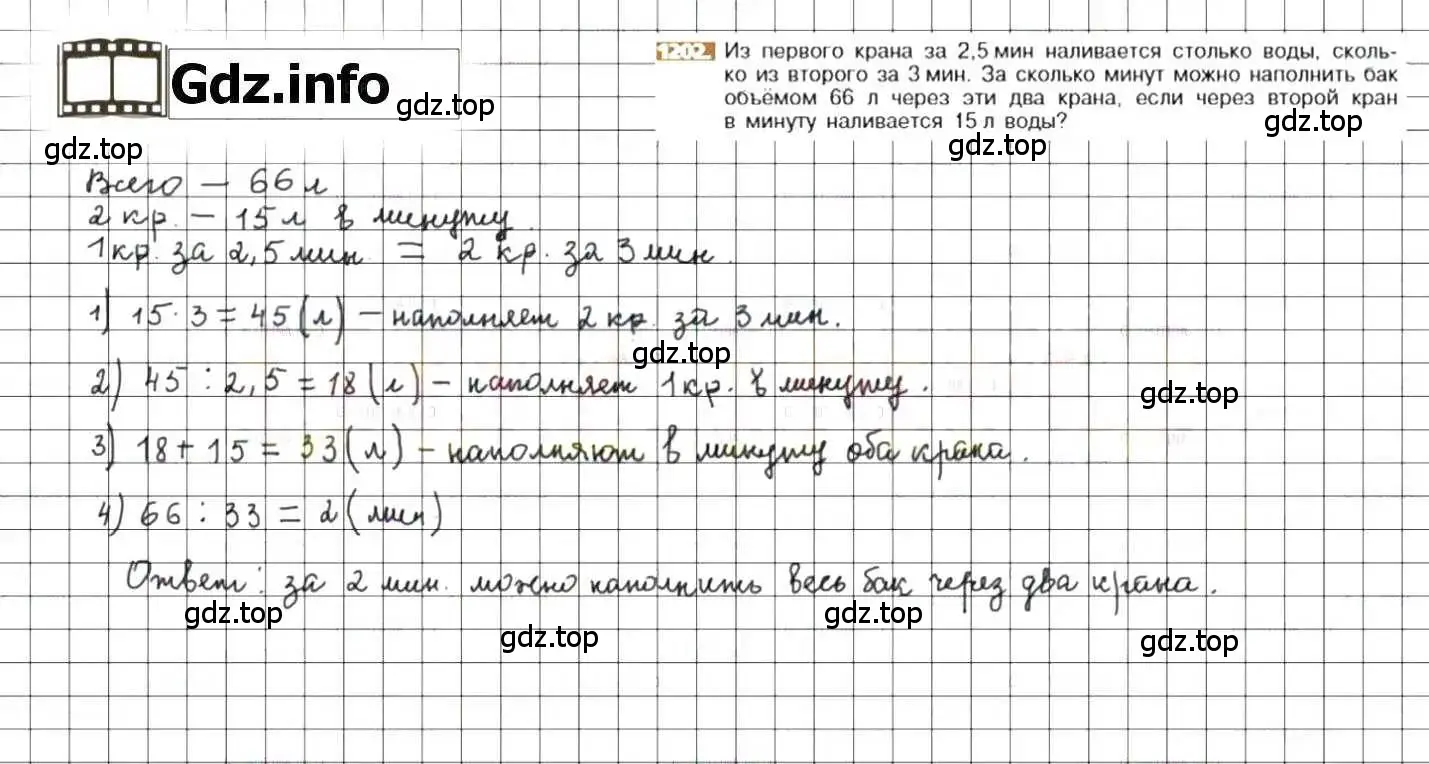 Gdz.info
gdz.top
1202. Из первого крана за 2,5 мин наливается столько воды, сколь-
ко из второго за 3 мин. За сколько минут можно наполнить бак
объёмом 66 л через эти два крана, если через второй кран
в минуту наливается 15 л воды?
gdz.top
gdz.top
gdz.top
Всего – 66 л
2 кр. – 15 л в минуту.
1 кр. за 2,5 мин = 2 кр. за 3 мин.
1) 15·3 = 45 (л) – наполняет 2 кр. за 3 мин.
gdz.top
2) 45 : 2,5 = 18 (л) – наполняет 1 кр. в минуту.
gdz.top
3) 18 + 15 = 33 (л) – наполняют в минуту оба крана.
4) 66 : 33 = 2 (мин)
Ответ: за 2 мин. можно наполнить весь бак через два крана.
gdz.top
gdz.top
gdz.top
gdz.top